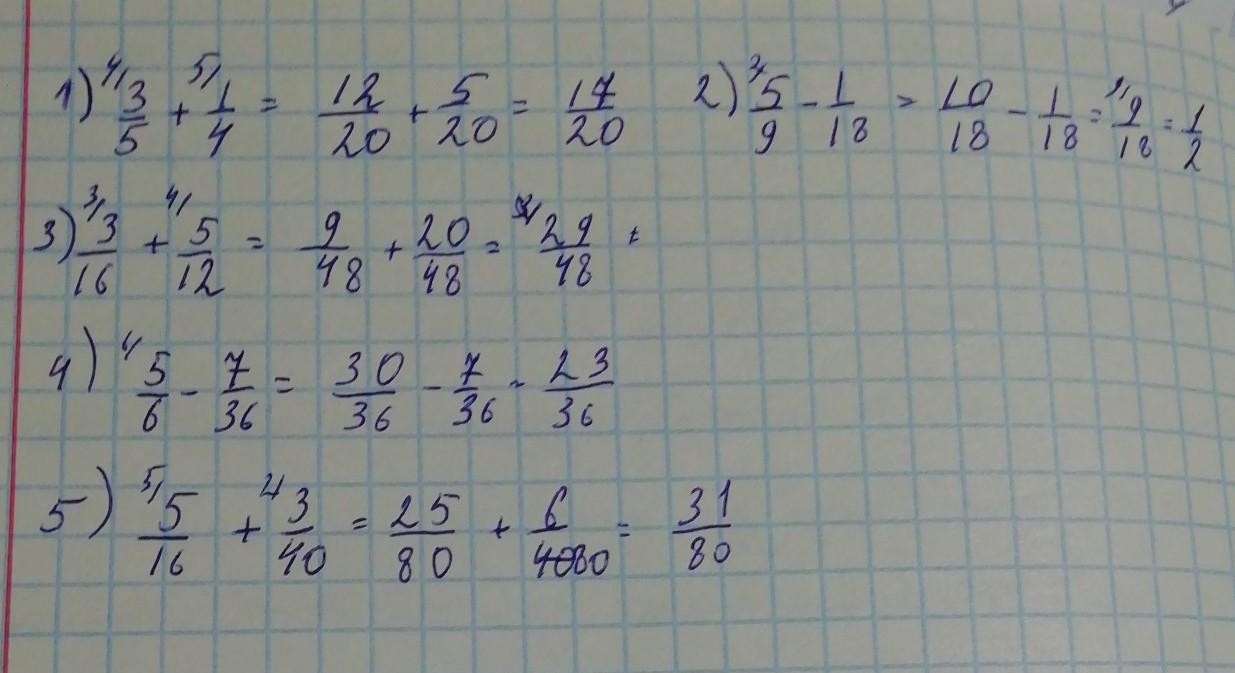 1) ⁴/3/5 + ⁵/1/4 = 12/20 + 5/20 = 17/20 2) 5/9 - 1/18 = 10/18 - 1/18 = 9/18 = 1/2
3) ³/3/16 + ⁴/5/12 = 9/48 + 20/48 = 29/48
4) 5/6 - 7/36 = 30/36 - 7/36 = 23/36
5) ⁵/5/16 + ²/3/40 = 25/80 + 6/80 = 31/80